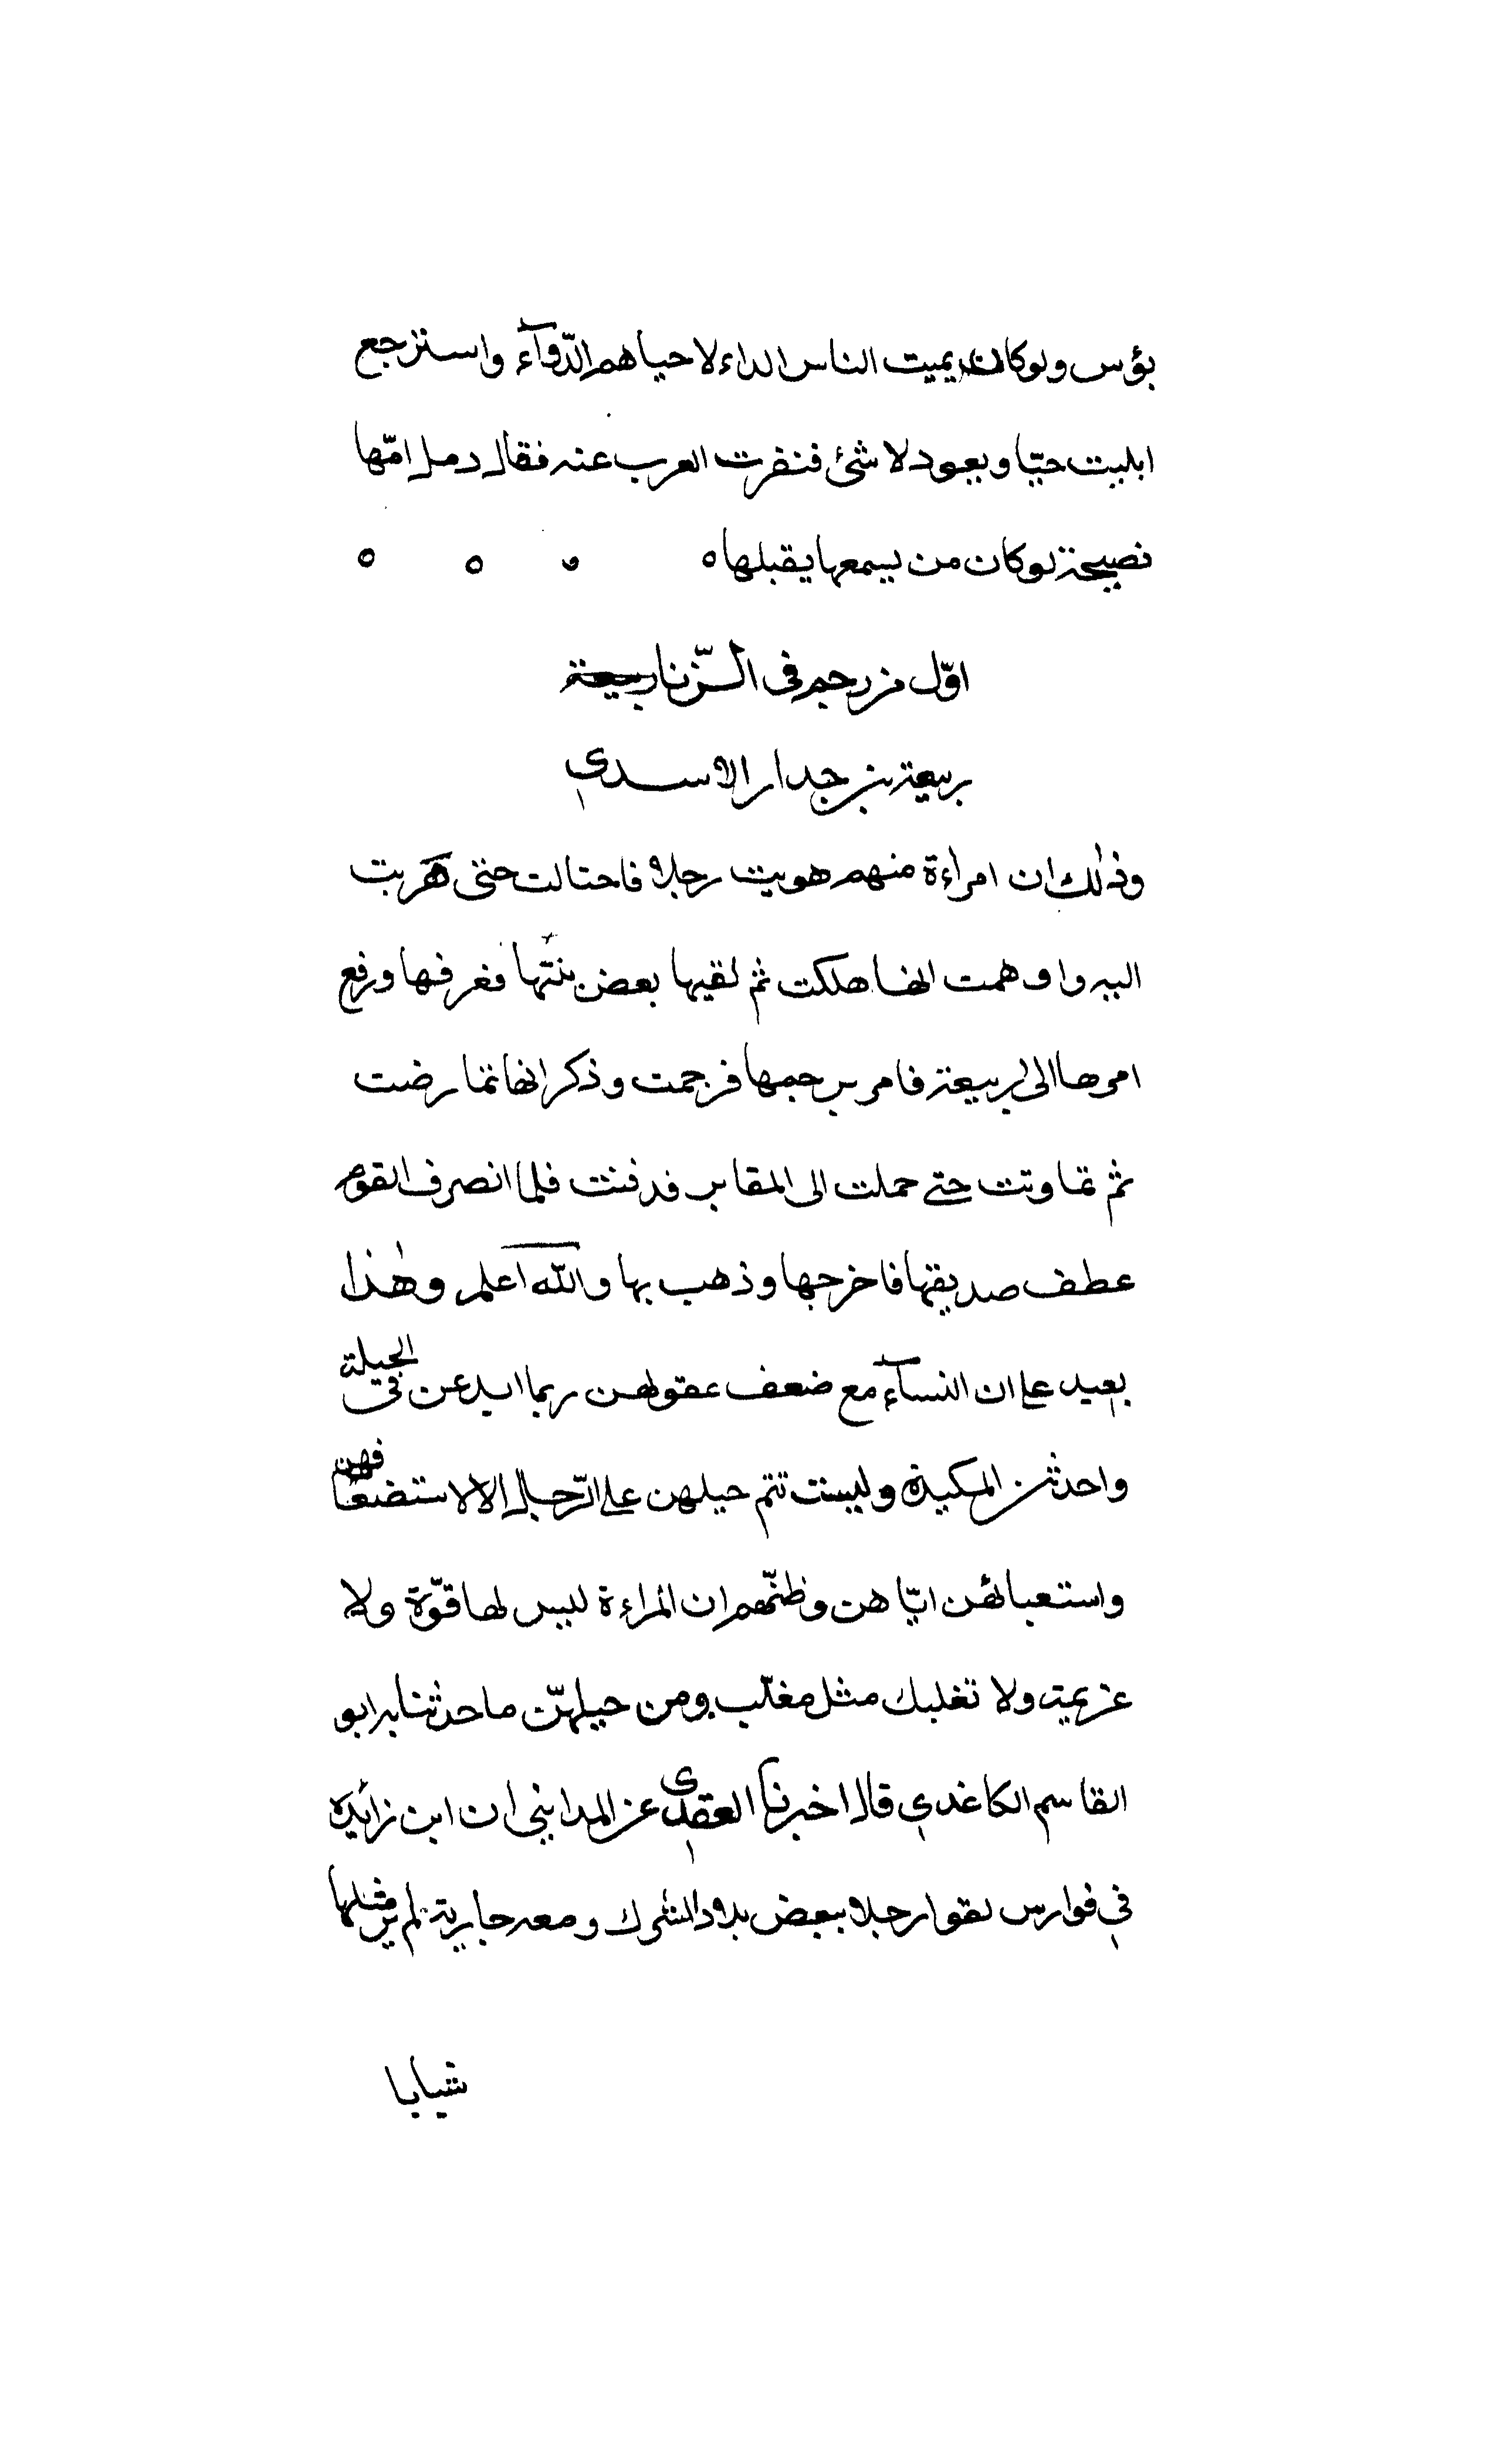 بؤس ولو كان يميت الناس الداء لاحياهم الدّوآء واسترجع
الميت حيّا ويعود لا شئ فنفرت العرب عنه فقال دمل امّها
نصيحة لو كان من يسمعها يقبلها ه ه ه ه
اوّل من رجم فى الزّنا ربيعة
ربيعة بن جدار الاسدي
وذٰلك ان امراءة منهم هويت رجلا فاحتالت حتى هربت
اليه واوهمت انها هلكت ثم لقيها بعض بنتها فعرفها ورفع
امرها الى ربيعة فامر برجمها فرجمت وذكر انها تمارضت
ثم تماوتت حتى حملت الى المقابر فدفنت فلما انصرف القوم
عطف صديقها فاخرجها وذهب بها والله اعلم وهٰذا
بعيد على ان النسآء مع ضعف عقولهن ربما ابدعن فى الحيلة
واحدثن المكيدة وليست تتم حيلهن على الرّجال الا لاستضعافهن
واستعبالهن ايّاهن وظنّهم ان المراءة ليس لها قوّة ولا
عزيمة ولا تغلبك مثل مغلّب ومن حيلهنّ ما حدثنا به ابو
القاسم الكاغدي قال اخبرنا العقدى عن المدايني ان ابن زائدة
في فوارس لقوا رجلا ببعض بلاد الشرك ومعه جارية لم ير مثلها
شبابا